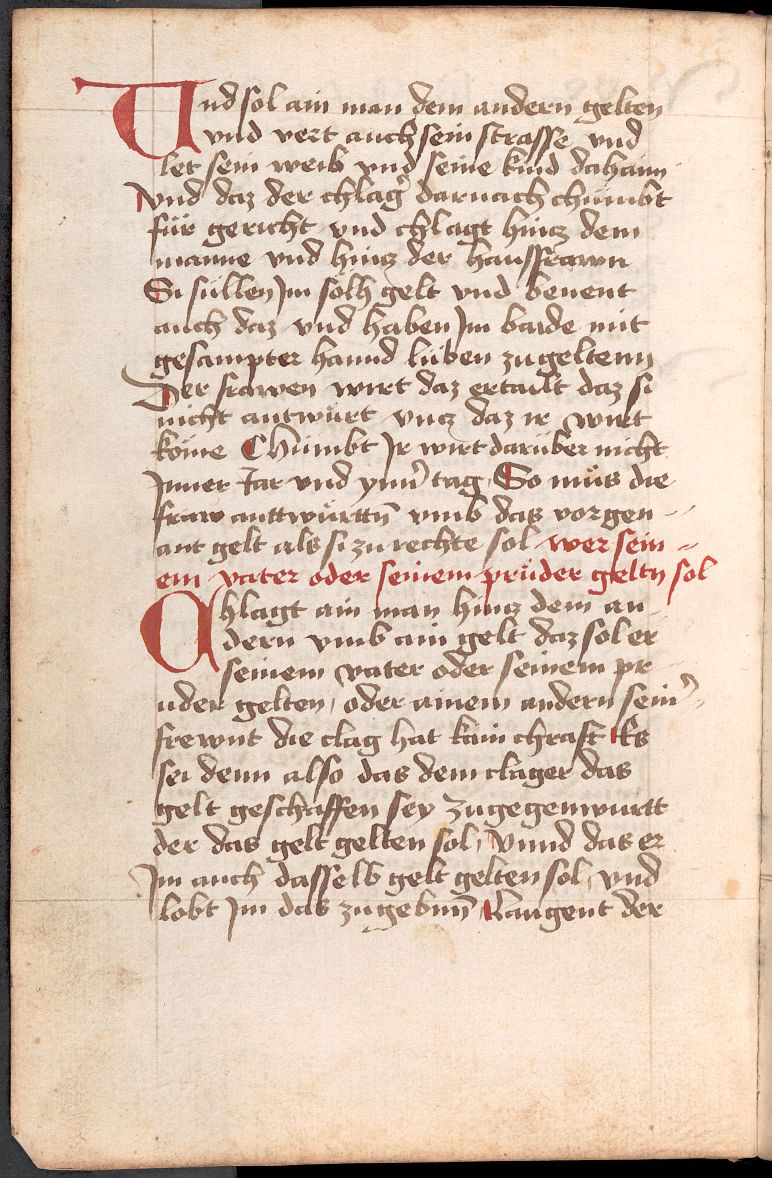 Und sol ain man dem andern gelten
vnd vert auch sein strasse vnd
let sein weib vnd seine kind dahaim
Vnd daz der chlag͛ darnach chümbt
für gericht vnd chlagt hincz dem
manne vnd hincz der haussfrawn
Si süllen Jm solh gelt vnd benent
auch daz vnd haben Jm baide mit
gesampter hannd lüben zugeltenn
Der frawen wirt daz ertailt daz si
nicht antwürt vncz daz ir wirt
köme Chümbt Jr wirt darüber nicht
Jnner Jar vnd ynn͛ tag So müs die
fraw anttwürttn̄ vmb das vorgen-
ant gelt als si zu rechte sol wer sein-
em vater oder seinem prüder geltn sol
Chlagt ain man hincz dem an-
dern vmb ain gelt daz sol er
seinem vater oder seinem pr-
uder gelten oder ainem andern sein͛
frewnt die clag hat kain chraft Es
sei denn also das dem clager das
gelt geschaffen sey zugegenwurtt
der das gelt gelten sol Vnnd das er
Jm auch dasselb gelt gelten sol vnd
lobt Jm das zugebnn̄ Laugent der